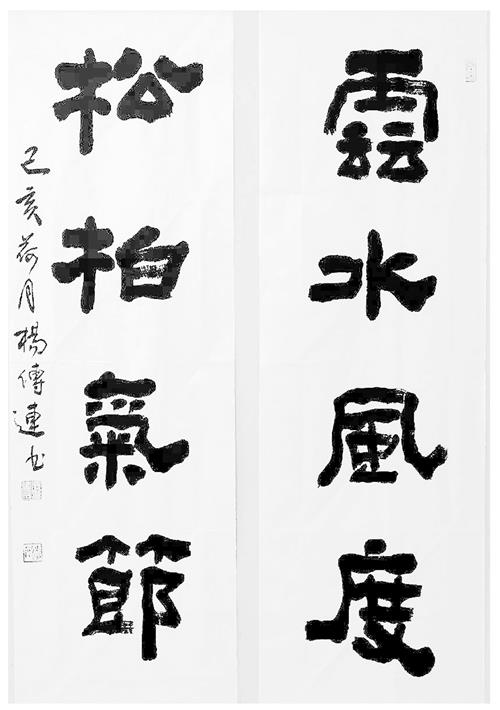 雲水風度
松柏氣節
己亥荷月楊傳連书